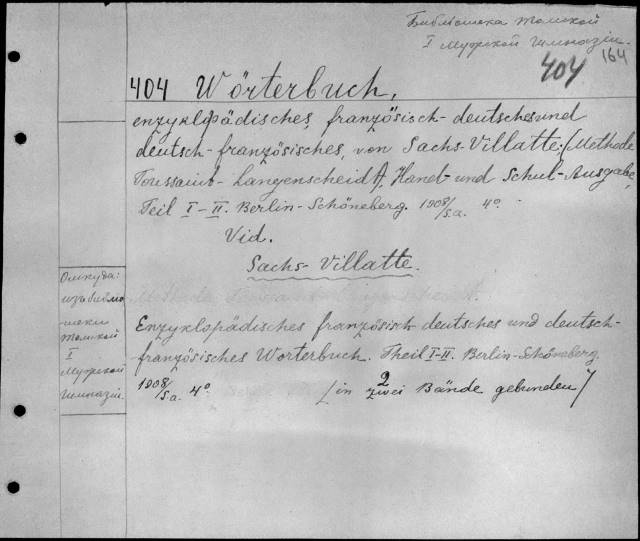 Библіотека Томской
I Мужской Гимназіи.
404 164
404 Wörterbuch,
enzyklopädisches, französisch-deutsches und
deutsch-französisches, von Sachs-Villatte, (Methode
Toussaint-Langenscheidt), Hand- und Schul-Ausgabe,
Teil I-II. Berlin-Schöneberg. 1908/s.a. 4º
Vid.
Sachs-Villatte.
Откуда:
изъ библіо-
теки
Томской
I
Мужской
Гимназіи.
Methode Toussaint-Langenscheidt.
Enzyklopädisches französisch-deutsches und deutsch-
französisches Worterbuch. Theil I-II. Berlin-Schöneberg.
1908/s.a. 4º [in 2 zwei Bände gebunden]